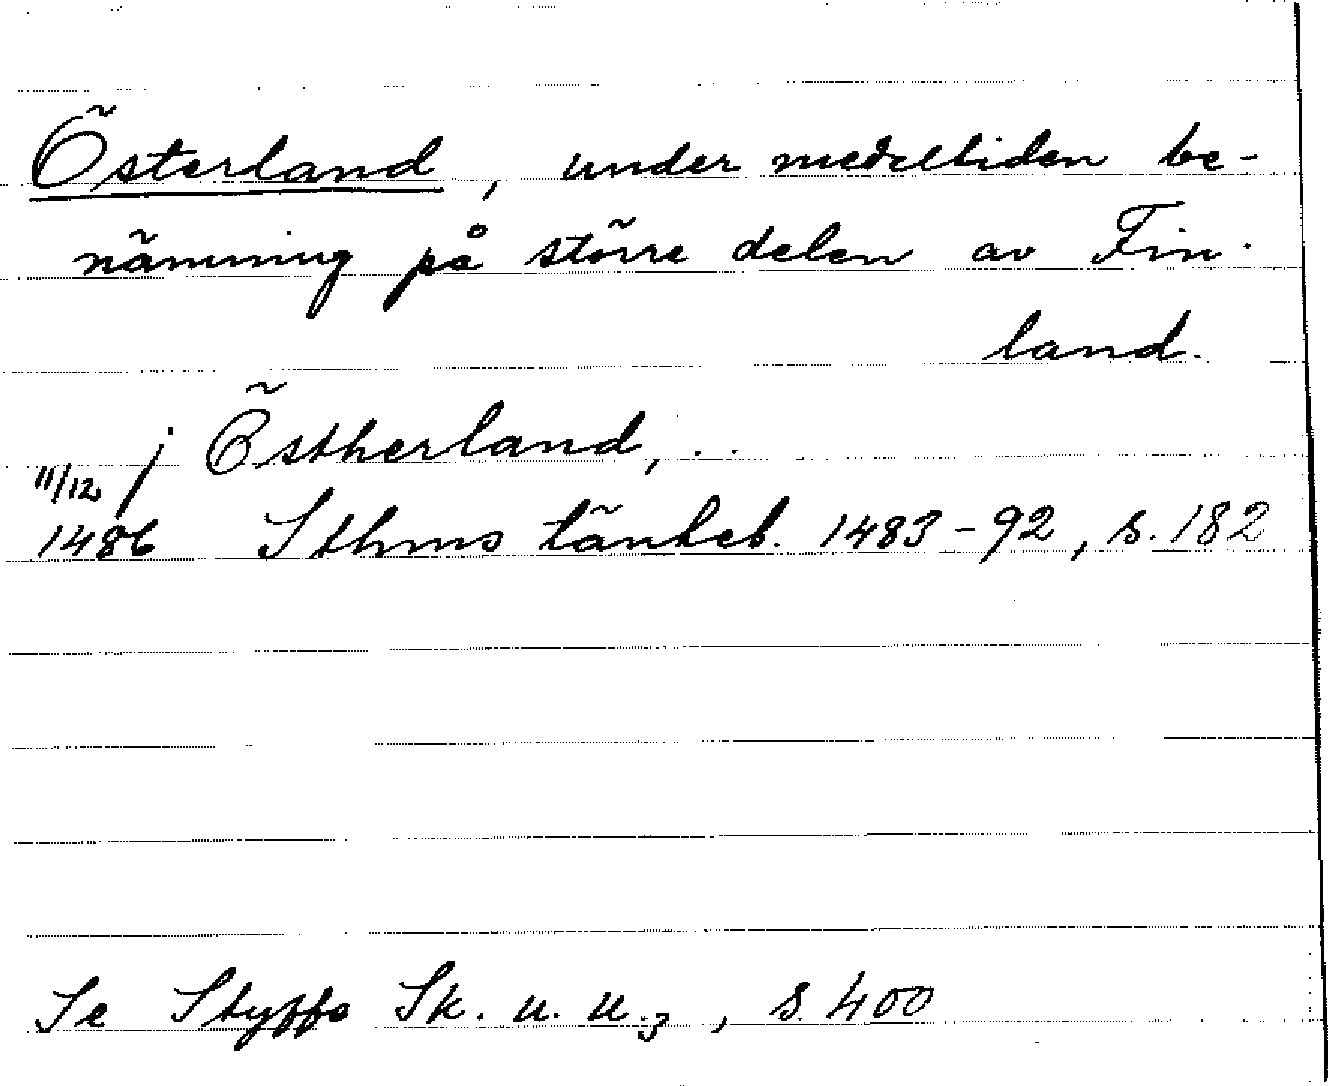 Österland, under medeltiden be-
nämning på större delen av Fin-
land.
j Östherland, ..
11/12
1486 Sthms tänkeb. 1483-92, s. 182
Se Styffe Sk. u. u.3, s. 400